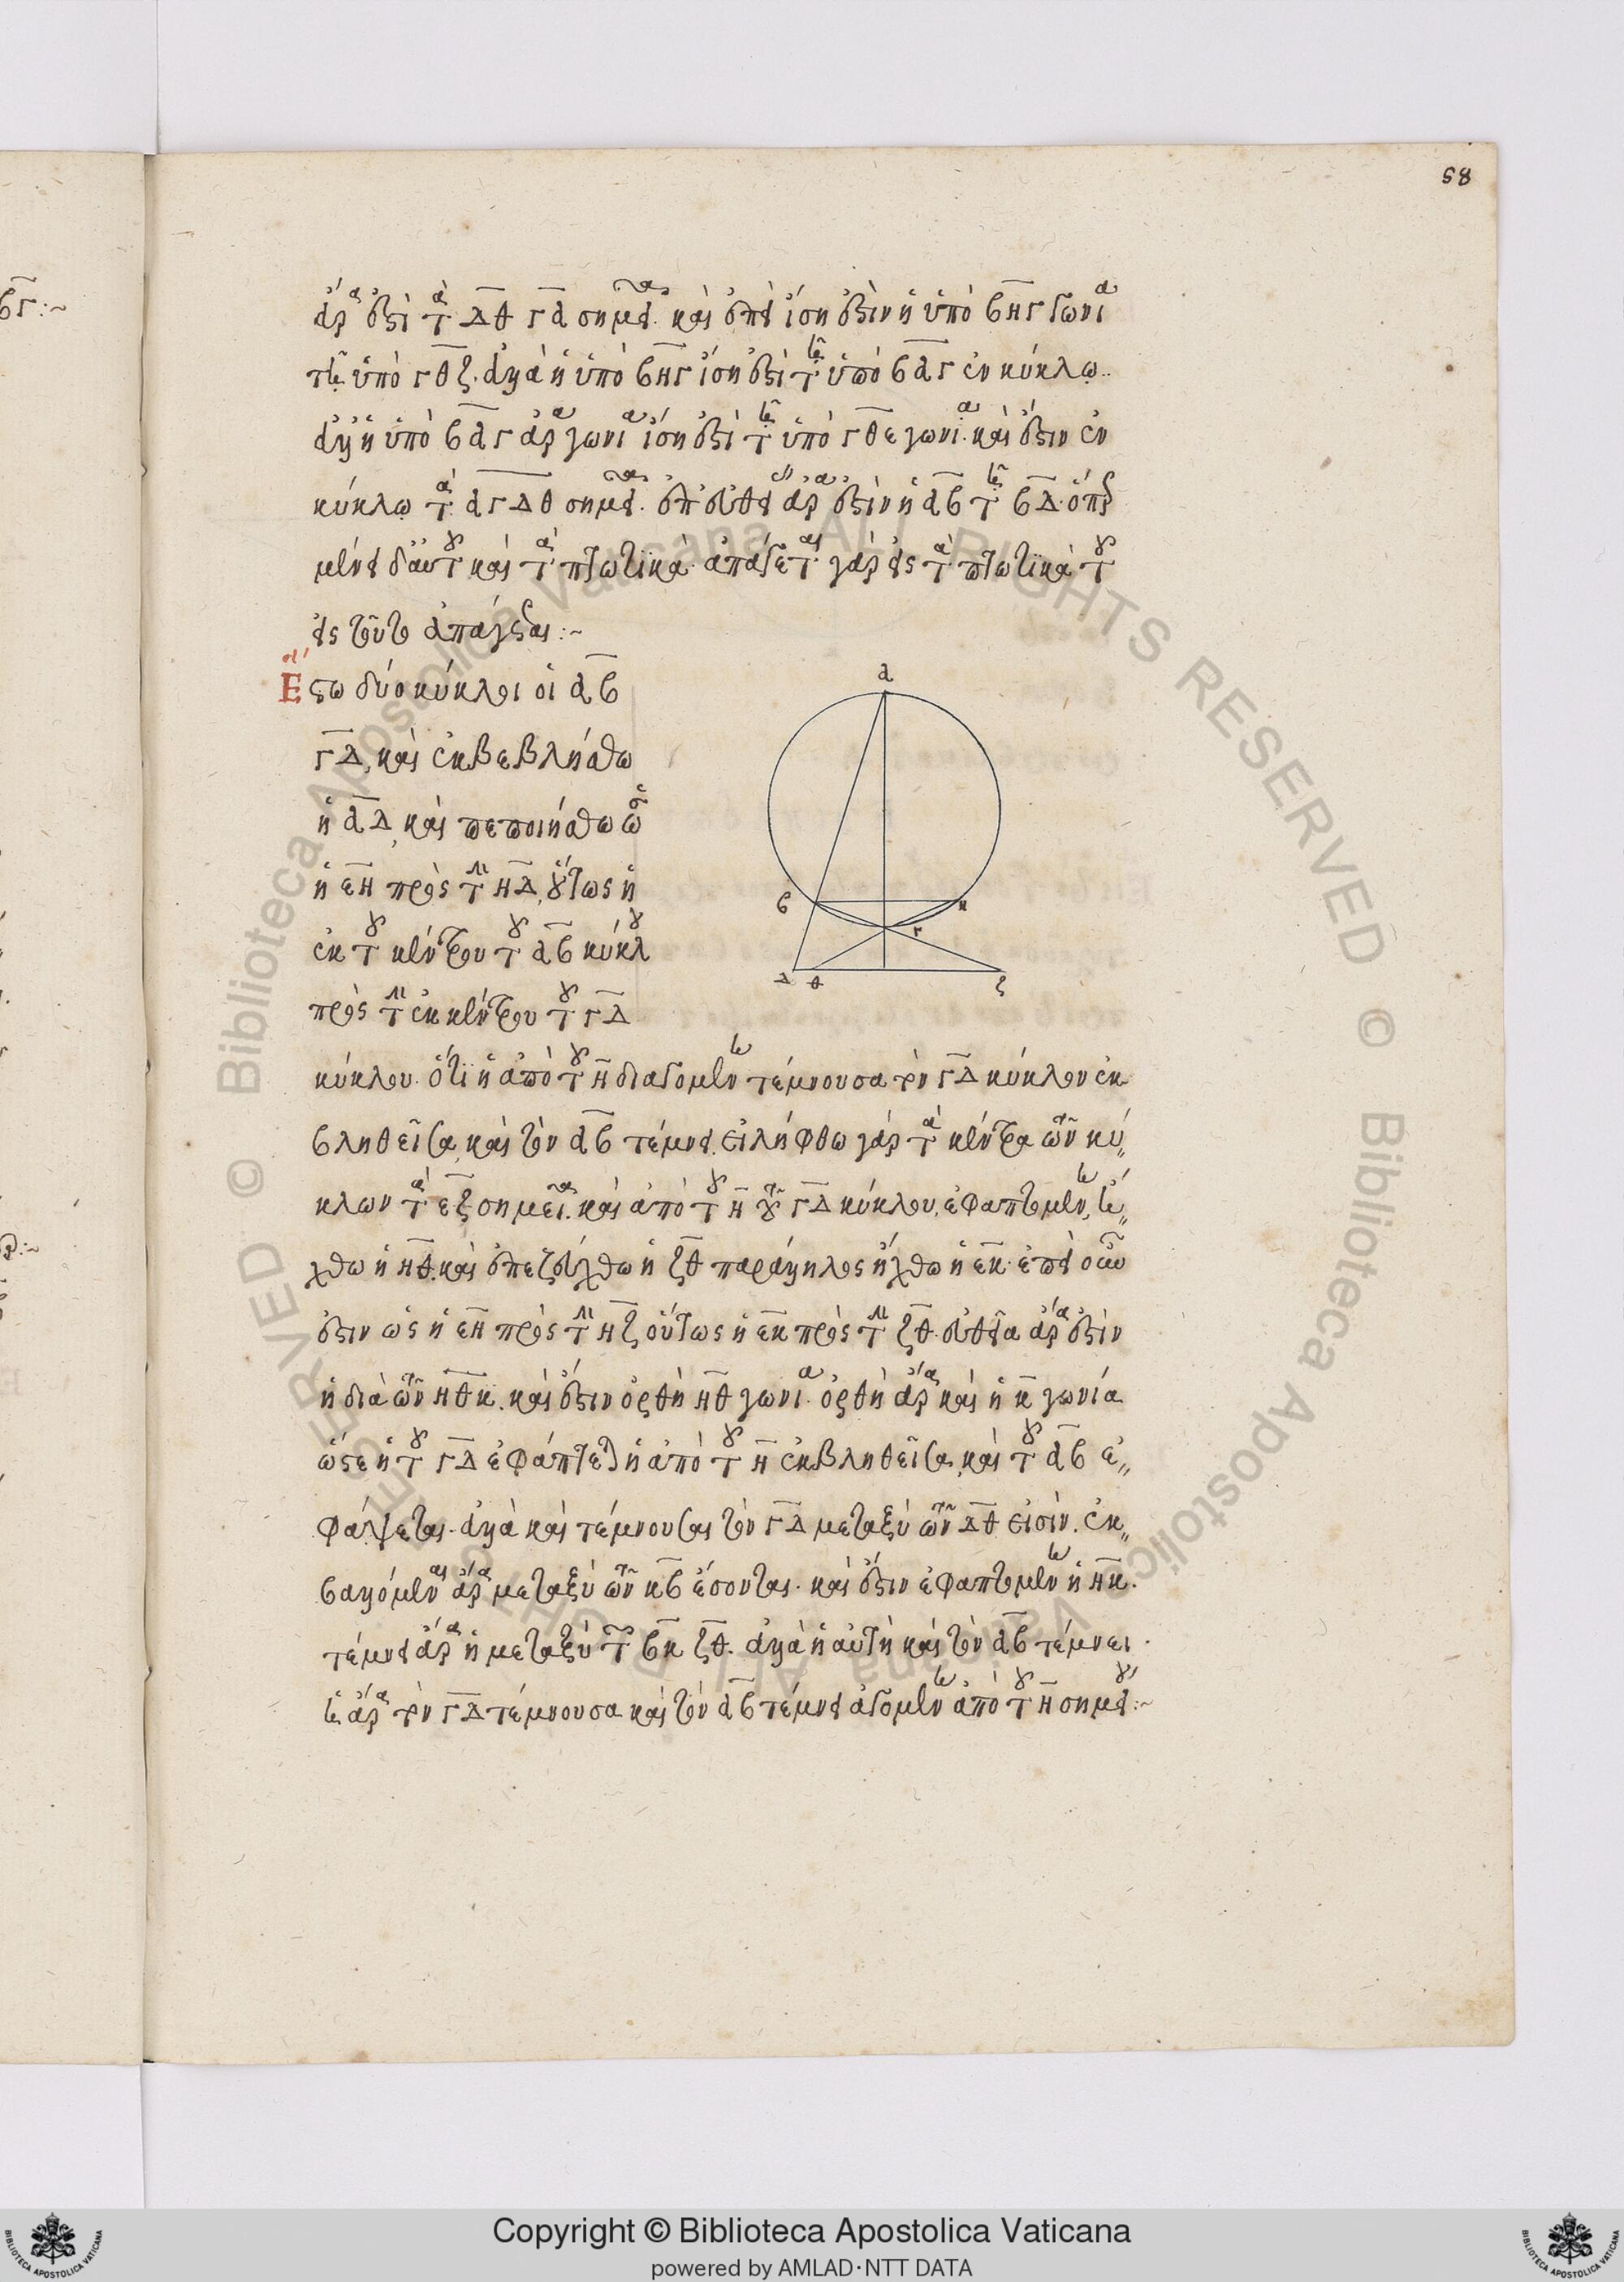 58
ἄρα ἐστὶ τὰ δθ γα σημεῖα. καὶ ἐπεὶ ἴση ἐστὶν ἡ ὑπὸ βηγ γωνία
τῇ ὑπὸ γθζ. ἀλλὰ ἡ ὑπὸ βηγ ἴση ἐστὶ τῇ ὑπὸ βαγ ἐν κύκλῳ.
ἀλλ ἡ ὑπὸ βαγ ἄρα γωνία ἴση ἐστὶ τῇ ὑπὸ γθε γωνία. καὶ ἔστιν ἐν
κύκλῳ τὰ αγδθ σημεῖα. ἐπ εὐθείας ἄρα ἐστὶν ἡ αβ τῇ βδ. ὅπερ
μένει δὲ αὐτοῦ καὶ τὰ πτωτικὰ. ἀπάγεται γὰρ εἰς τὰ πτωτικὰ τοῦ
εἰς τοῦτο ἀπάγεσθαι :~
Ἔστω δύο κύκλοι οἱ αβ
γδ, καὶ ἐκβεβλήσθω
ἡ αδ, καὶ πεποιήσθω ὡς
ἡ εη πρὸς τὴν ηδ, οὕτως ἡ
ἐκ τοῦ κέντρου τοῦ αβ κύκλου
πρὸς τὴν ἐκ κέντρου τοῦ γδ
κύκλου. ὅτι ἡ ἀπὸ τοῦ η διαγομένη τέμνουσα τὸν γδ κύκλον ἐκ
βληθεῖσα, καὶ τὸν αβ τέμνει. εἰλήφθω γὰρ τὰ κέντρα τῶν κύ
κλων τὰ εζ σημεῖα. καὶ ἀπὸ τοῦ η τοῦ γδ κύκλου, ἐφαπτομένη, ἤ
χθω ἡ ηθ. καὶ ἐπεζεύχθω ἡ ζθ παράλληλος ἤχθω ἡ εκ. ἐπεὶ οὖν
ἐστιν ὡς ἡ εη πρὸς τὴν ηζ οὕτως ἡ εκ πρὸς τὴν ζθ. εὐθεῖα ἄρα ἐστὶν
ἡ διὰ τῶν ηθκ. καὶ ἔστιν ὀρθὴ ἡ θ γωνία. ὀρθὴ ἄρα καὶ ἡ κ γωνία
ὥστε ἡ τοῦ γδ ἐφάπτεται ἡ ἀπὸ τοῦ η ἐκβληθεῖσα, καὶ τοῦ αβ ἐ
φάψεται. ἀλλὰ καὶ τέμνουσαι τὸν γδ μεταξὺ τῶν δθ εἰσὶν. ἐκ
βαλλόμεναι ἄρα μεταξὺ τῶν κβ ἔσονται. καὶ ἔστιν ἐφαπτομένη ἡ ηκ.
τέμνει ἄρα ἡ μεταξὺ τῶν βκ ζθ. ἀλλὰ ἡ αὐτὴ καὶ τὸν αβ τέμνει.
ἡ ἄρα τὸν γδ τέμνουσα καὶ τὸν αβ τέμνει ἀγομένη ἀπὸ τοῦ η σημείου :~
α
β
κ
γ
δ
θ
ζ
Copyright © Biblioteca Apostolica Vaticana
powered by AMLAD·NTT DATA